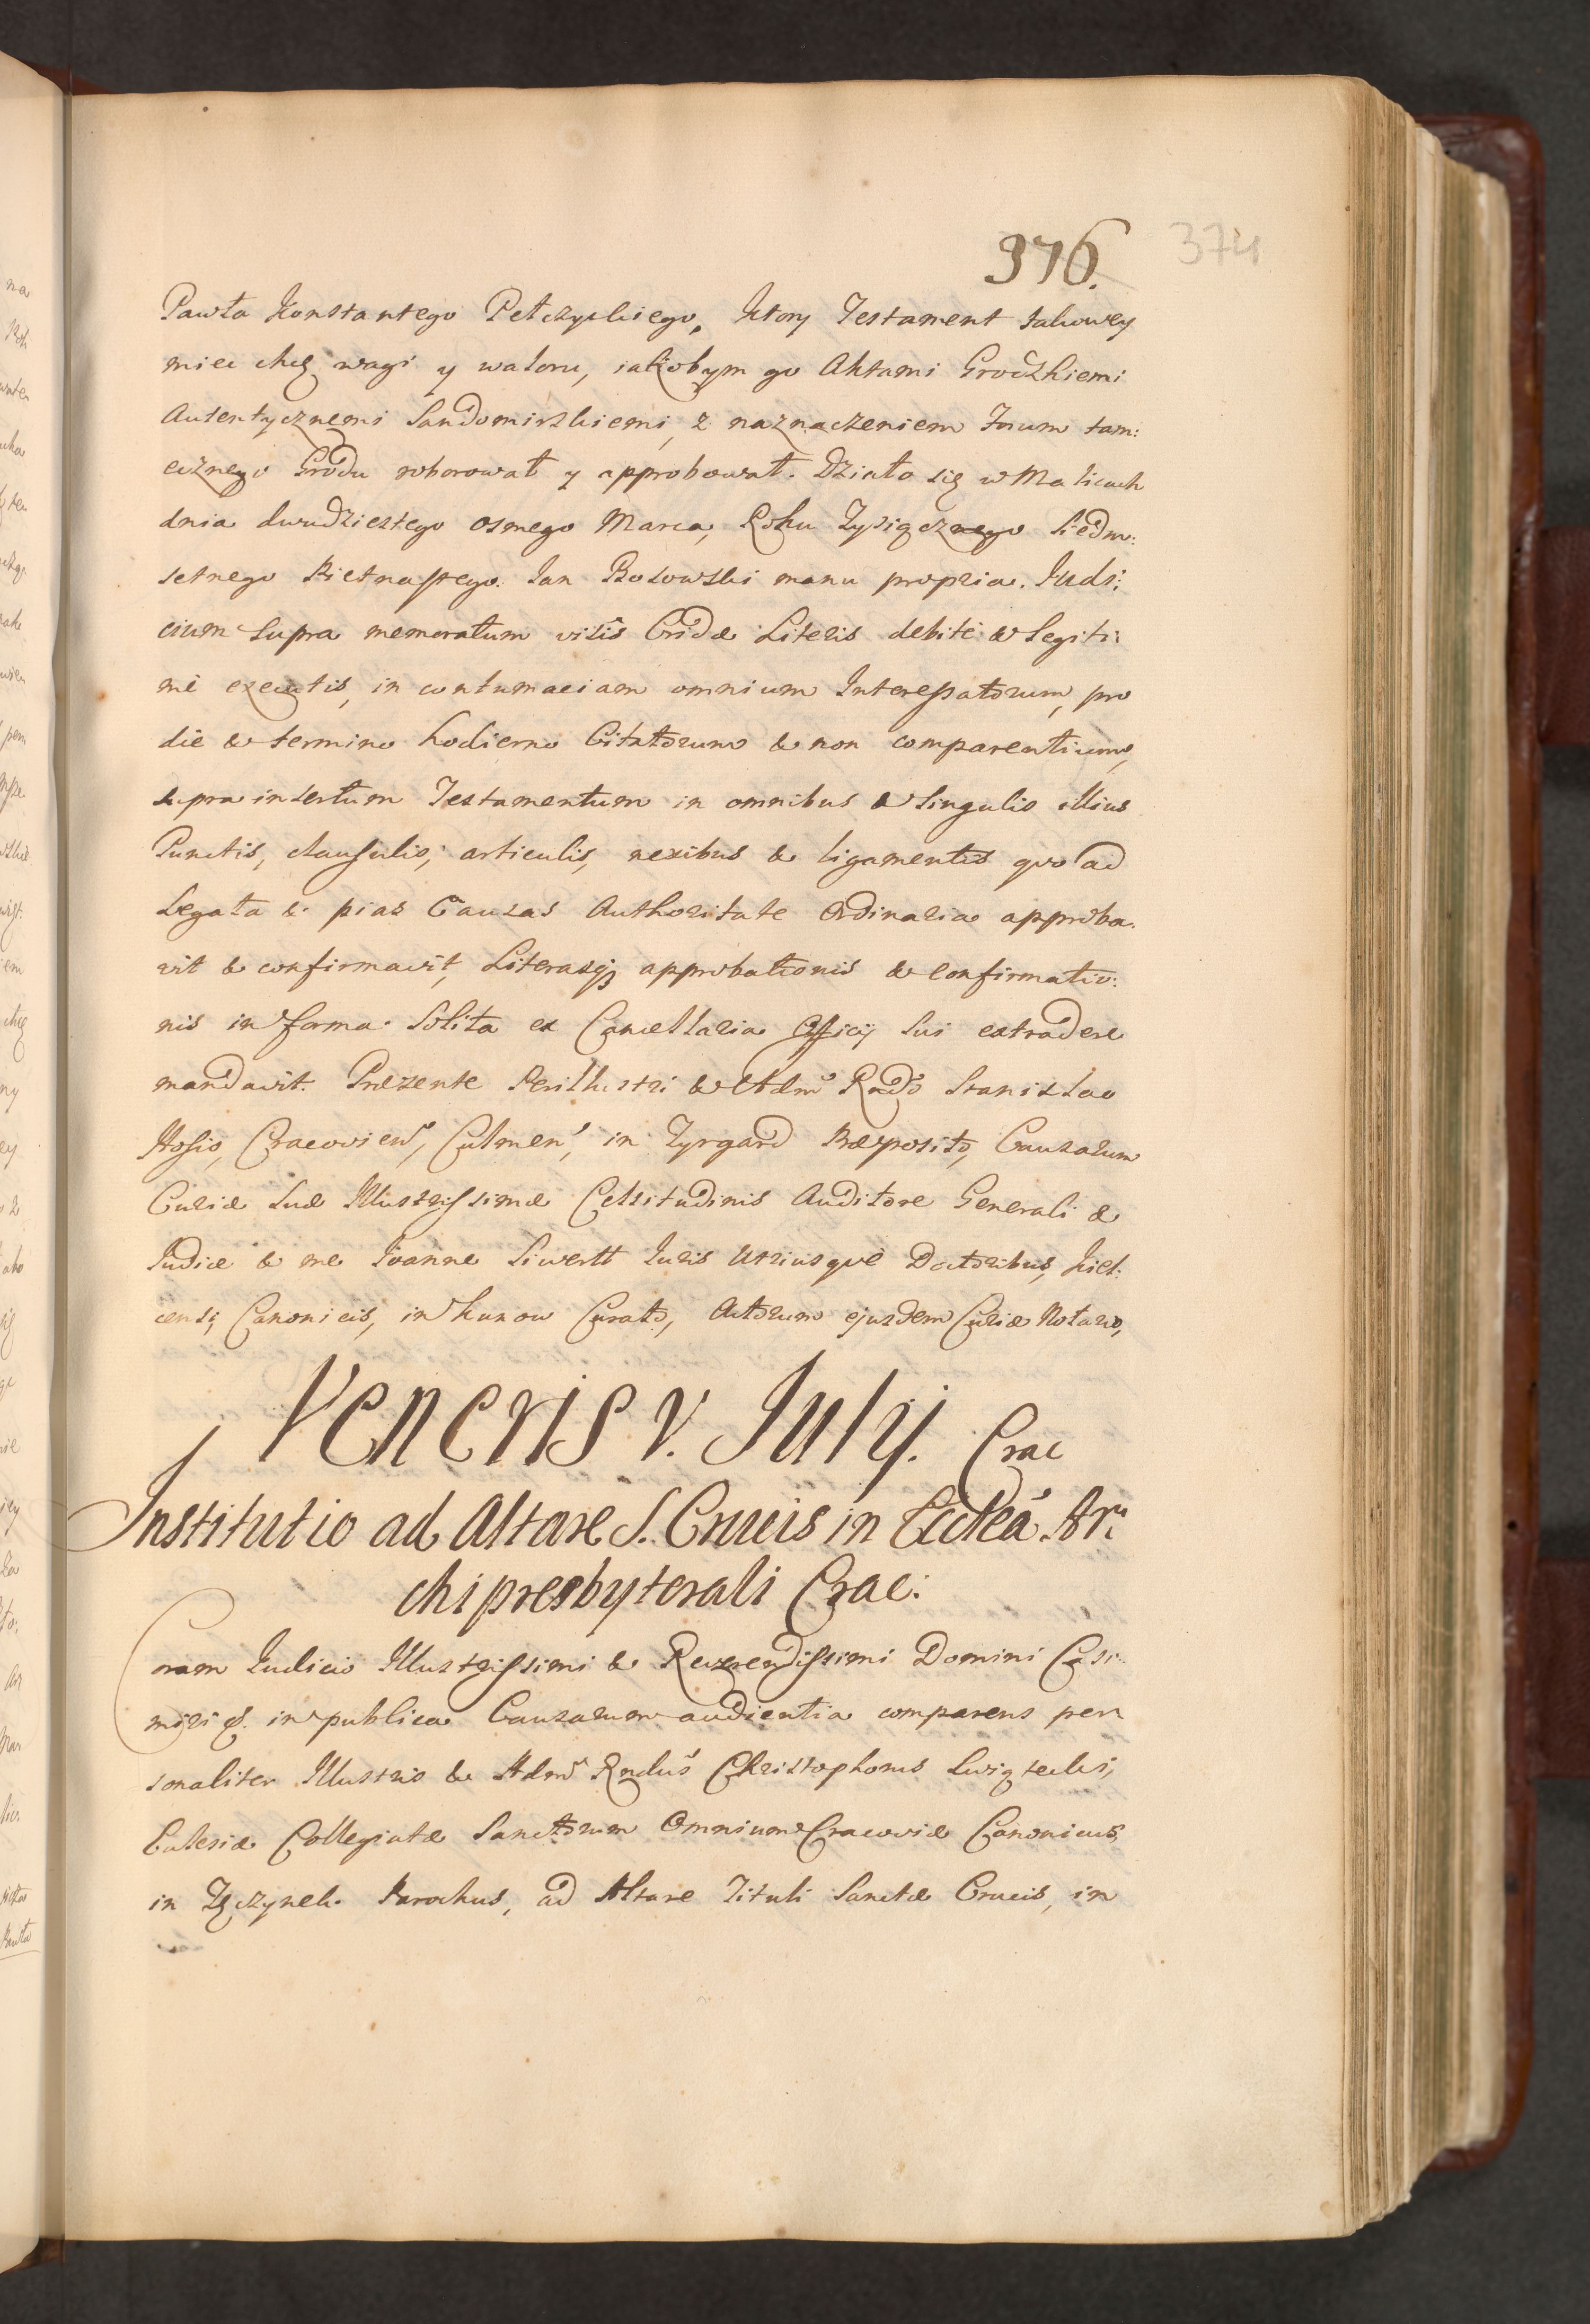 376. 374
Pawła Konstantego Pełczyckiego, ktory Testament takowey
miec chcę wagi y waloru, iakobym go Aktami Grodzkiemi
Autentycznemi Sandomirskiemi, z naznaczeniem Forum tam:
ecznego Grodu roborował y approbował. Działo się w Malicach
dnia dwudziestego osmego Marca, Roku Tysiącznego Siedm:
setnego Pietnastego. Jan Bosowski manu propria. Judi:
cium supra memoratum visis Cridæ Literis debitè & legiti:
mè executis, in contumaciam omnium Interessatorum, pro
die & termino hodierno Citatorum & non comparentium,
supra insertum Testamentum in omnibus & singulis illius
Punctis, clausulis, articulis, nexibus & ligamentis quo ad
Legata & pias Causas Authoritate Ordinaria approba:
vit & confirmavit, Literasq; approbationis & confirmatio:
nis in forma solita ex Cancellaria Officij sui extradere
mandavit. Præsente Perillustri & Adm Rndo Stanislao
Hosio, Cracovien, Culmen, in Zyrgard Præposito, Causarum
Curiæ Suæ Illustrissimæ Celsitudinis Auditore Generali &
Judice & me Joanne Siwertt Juris Utriusque Doctoribus, Kiel:
censi Canonicis, in Kunow Curato, Actorum ejusdem Curiæ Notario,
Veneris V. July. Crac
Institutio ad Altare S. Crucis in Eccleã Ar:
chipresbyterali Crac:
Coram Judicio Illustrissimi & Reverendissimi Domini Casi:
miri &. in publica Causarum audientia comparens per
sonaliter Illustris & Adm Rndus Christophorus Swiątecki,
Eclesiæ Collegiatæ Sanctorum Omnium Cracoviæ Canonicus,
in Tęczynek Parochus, ad Altare Tituli Sanctæ Crucis, in